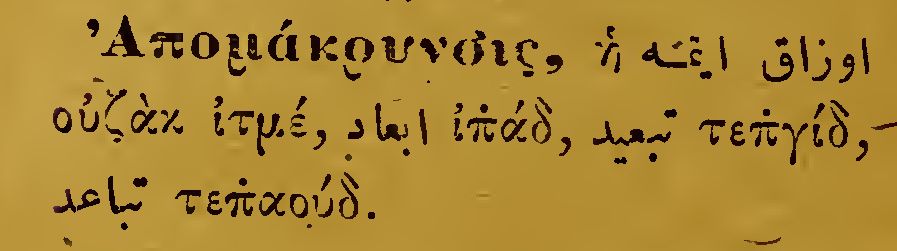 Ἀπομάκρυνσις, ἡ اوزاق ايتمه
οὐζὰκ ἰτμέ, ابعاد ἰπ̇άδ, تبعيد τεπ̇γίδ,
تباعد τεπ̇αούδ.